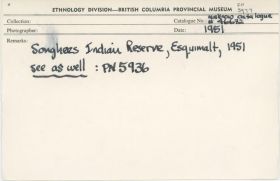 PN
5937
ETHNOLOGY DIVISION—BRITISH COLUMBIA PROVINCIAL MUSEUM
Collection:
Catalogue No. catalogue
Photographer:
Date: 1951
Remarks:
Songhees Indian Reserve, Esquimalt, 1951
see as well : PN 5936